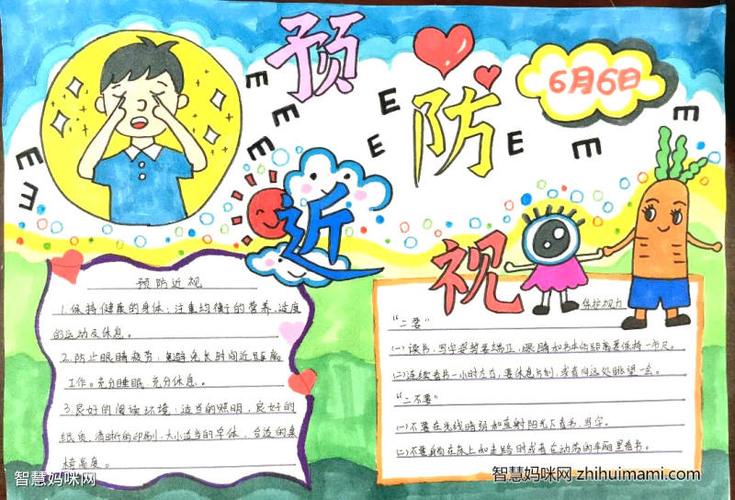 预防近视
6月6日
E
E
E
E
E
E
E
E
E
E
预防近视
1.保持健康的身体：注重均衡的营养、适度
的运动及休息。
2.防止眼睛疲劳：避免长时间近距离
工作。充分睡眠、充分休息。
3.良好的阅读环境：适当的照明，良好的
纸质、清晰的印刷、大小适当的字体，合适的桌
椅高度。
保护视力
“二要”
(一)读书、写字姿势要端正，眼睛和书本的距离要保持一市尺。
(二)连续看书一小时左右，要休息片刻，或者向远处眺望一会。
“二不要”
(一)不要在光线暗弱和直射阳光下看书、写字。
(二)不要躺在床上和走路时或者在动荡的车厢里看书。
智慧妈咪网
智慧妈咪网 zhihuimami.com